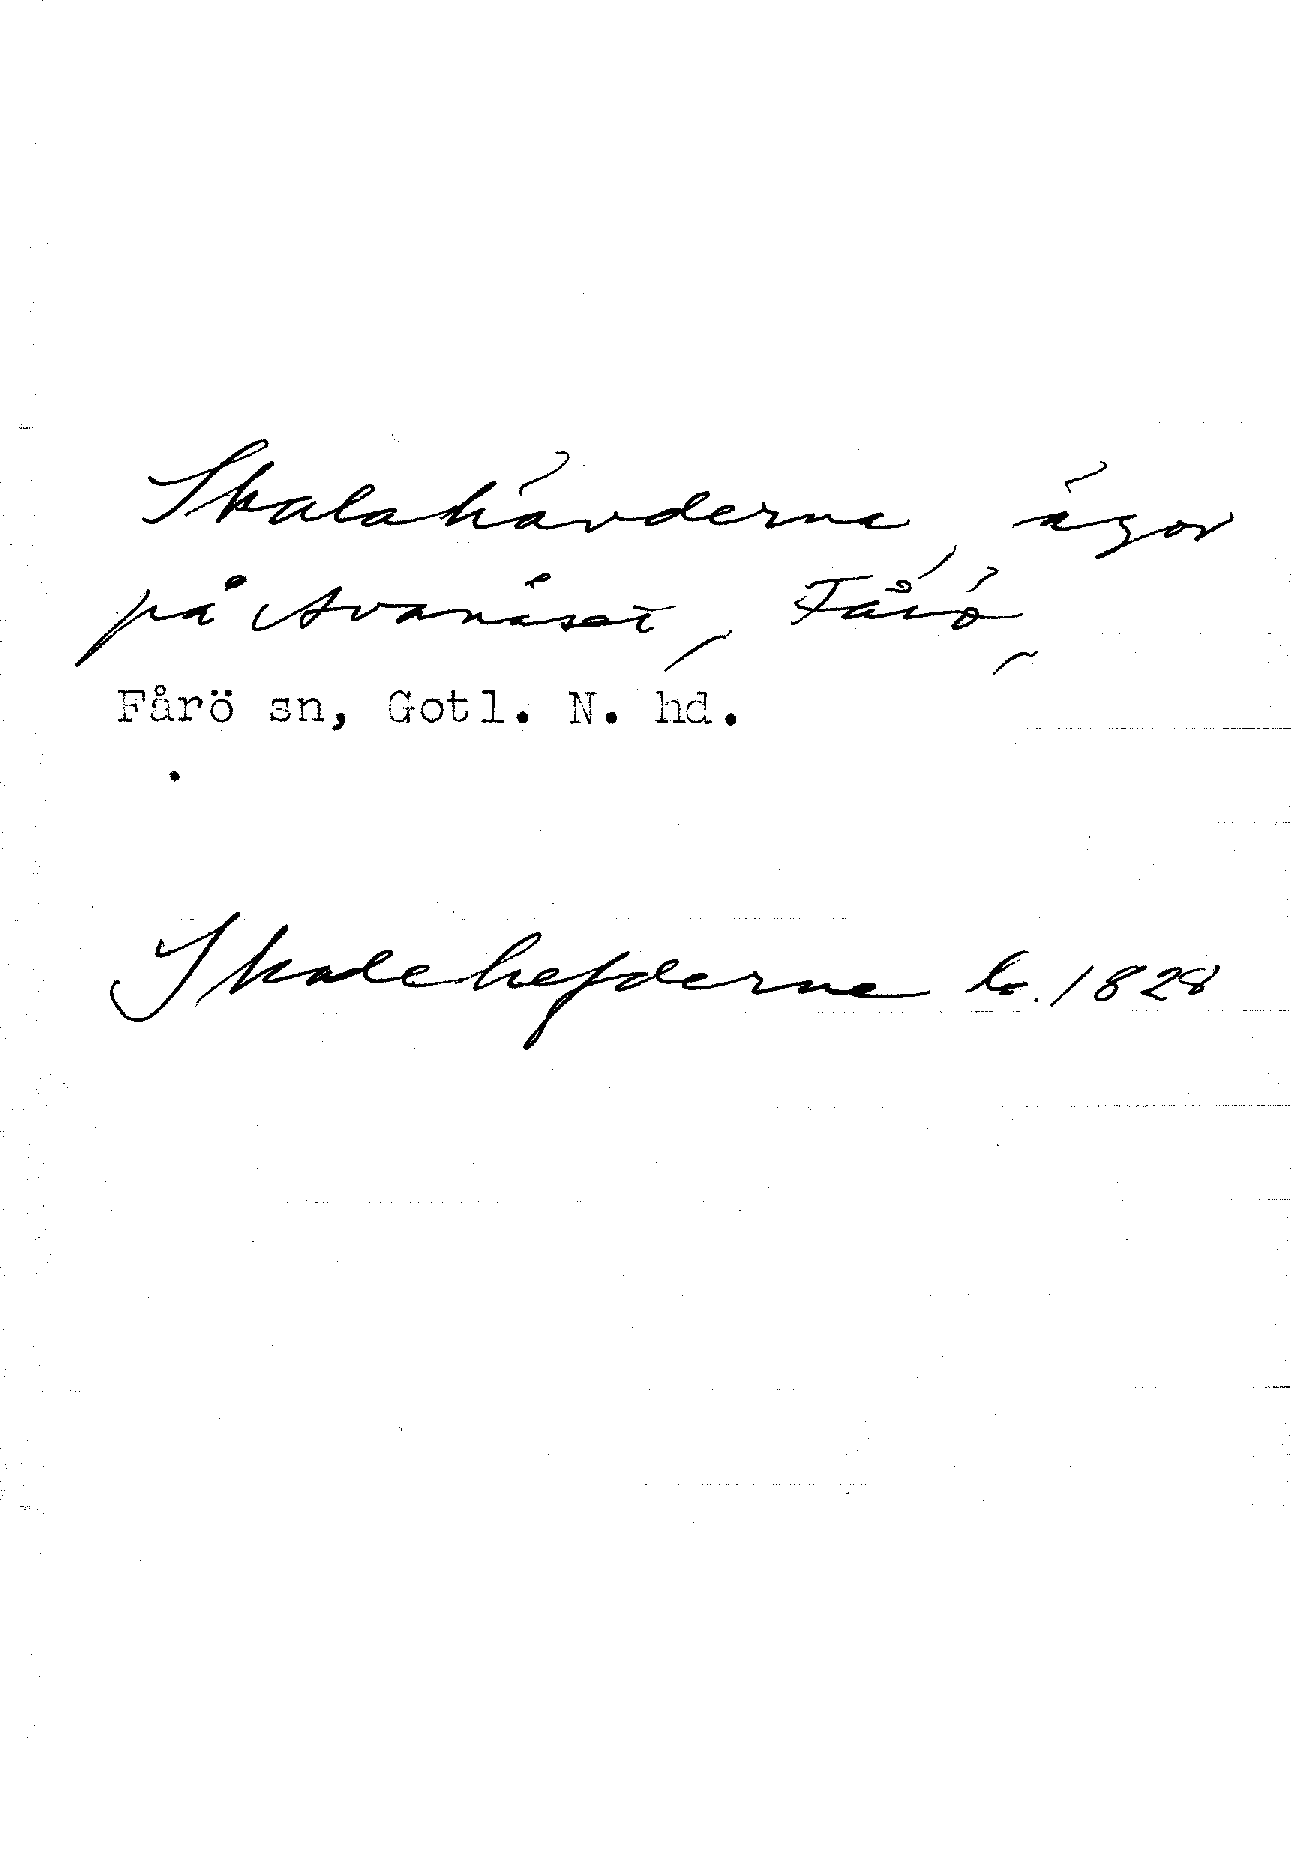 Skalahävderna, ägor
på Avanäset, Fårö,
Fårö sn, Gotl. N. hd.
Skalehefderne lo. 1828